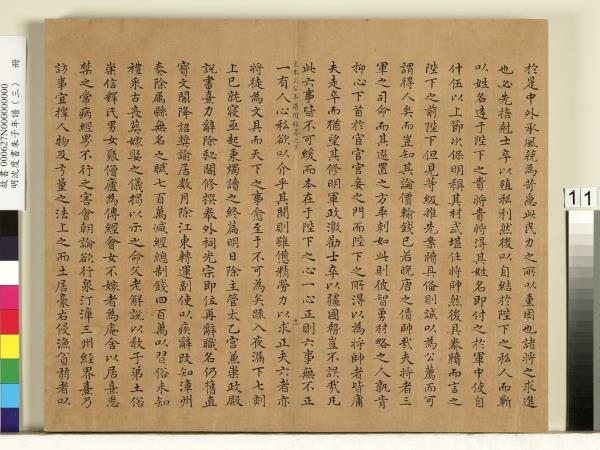 於是中外承風競為苛急此民力之所以重困也諸將之求進
也必先掊尅士卒以殖私利然後以自結於陛下之私人而蘄
以姓名達于陛下之貴將貴將得其姓名即付之於軍中使自
什伍以上節次保明稱其材武堪任將帥然後具奏牘而言之
陛下之前陛下但見等級推先案牘具備則誠以為公薦而可
謂得人矣而豈知其論價輸錢已若晚唐之債帥哉夫將者三
軍之司命而其選置之方乖剌如此則彼智勇材略之人孰肯
抑心下首於宦官宮妾之門而陛下之所得以為將帥者皆庸
夫走卒而猶望其修明軍政激勸士卒以彊國勢豈不誤哉凡
此六事皆不可緩而本在于陛下之心一心正則六事無不正
一有人心私欲以介乎其間則雖憊精勞力以求正夫六者亦
將徒為文具而天下之事愈至于不可為矣疏入夜漏下七刻
上已就寢亟起秉燭讀之終篇明日除主管太乙宮兼崇政殿
說書熹力辭除秘閣修撰奉外祠光宗即位再辭職名仍舊直
寶文閣降詔獎諭居數月除江東轉運副使以疾辭改知漳州
奏除屬縣無名之賦七百萬減經總制錢四百萬以習俗未知
禮采古喪葬嫁娶之儀揭以示之命父老解說以教子弟土俗
崇信釋氏男女聚僧廬為傳經會女不嫁者為庵舍以居熹悉
禁之常病經界不行之害會朝論欲行泉汀漳三州經界熹乃
訪事宜擇人物及方量之法上之而土居豪右侵漁貧弱者以
故書000627N000000000
明沈度書朱子年譜（三） 冊
11